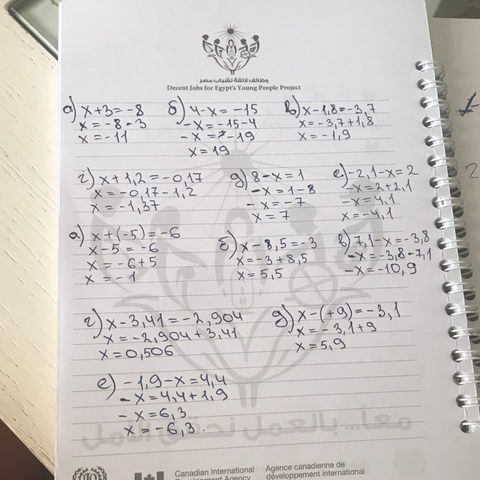 وظائف لائقة لشباب مصر
Decent Jobs for Egypt's Young People Project
а) x+3=-8 б) 4-x=-15 в) x-1,8=-3,7
x=-8-3 -x=-15-4 x=-3,7+1,8
x=-11 -x=-19 x=-1,9
x=19
г) x+1,2=-0,17 д) 8-x=1 е) -2,1-x=2
x=-0,17-1,2 -x=1-8 -x=2+2,1
x=-1,37 -x=-7 -x=4,1
x=7 x=-4,1
а) x+(-5)=-6 б) x-8,5=-3 в) 7,1-x=-3,8
x-5=-6 x=-3+8,5 -x=-3,8-7,1
x=-6+5 x=5,5 -x=-10,9
x=-1
г) x-3,41=-2,904 д) x-(+9)=-3,1
x=-2,904+3,41 x=-3,1+9
x=0,506 x=5,9
е) -1,9-x=4,4
-x=4,4+1,9
-x=6,3
x=-6,3.
معاً... بالعمل نحقق الأمل
Canadian International Agence canadienne de
Development Agency développement international